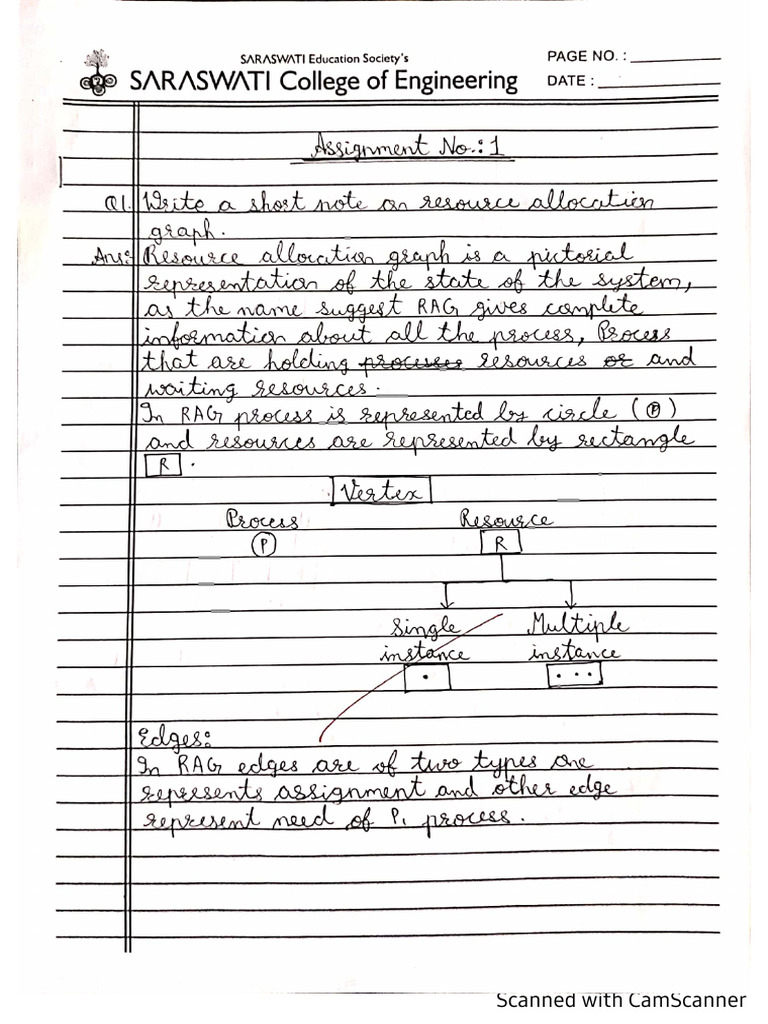 SARASWATI Education Society's
SARASWATI College of Engineering
PAGE NO. :
DATE :
Assignment No.: 1
Q1. Write a short note on resource allocation
graph.
Ans: Resource allocation graph is a pictorial
representation of the state of the system,
as the name suggest RAG gives complete
information about all the process, Process
that are holding processes resources or and
waiting resources.
In RAG process is represented by circle (P)
and resources are represented by rectangle
R.
Vertex
Process Resource
P R
Single Multiple
instance instance
Edges:
In RAG edges are of two types one
represents assignment and other edge
represent need of P1 process.
Scanned with CamScanner